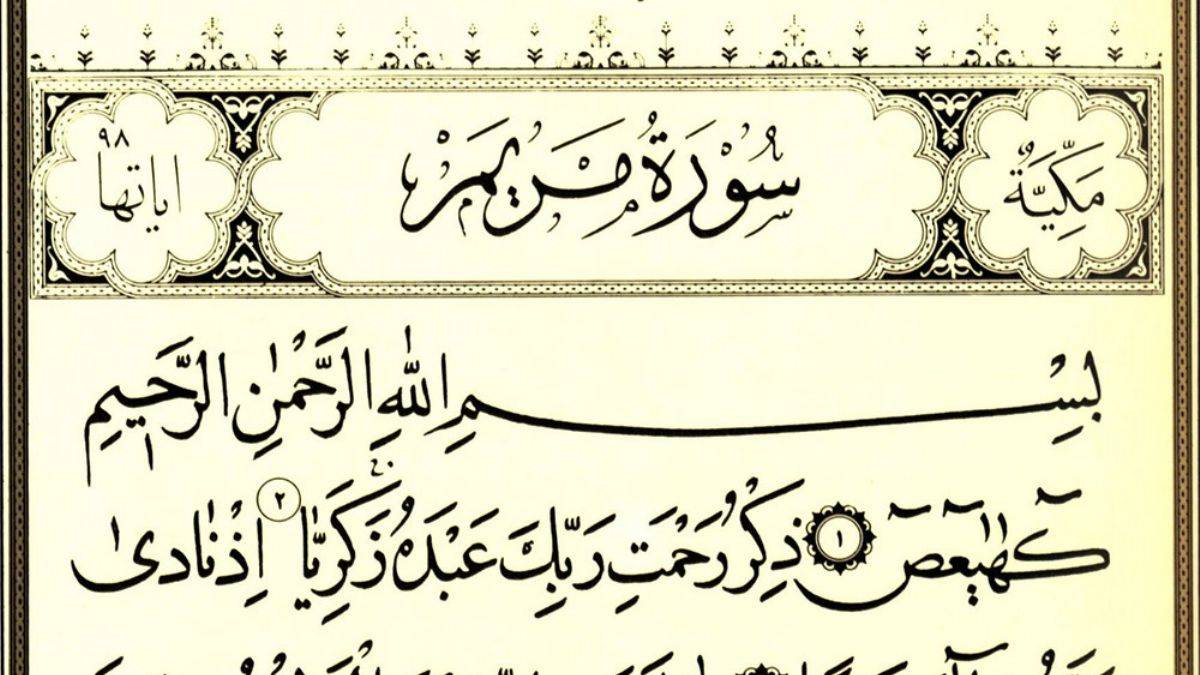 مَكِّيَّةٌ
سُورَةُ مَرْيَمَ
٩٨
اياتها
بِسْمِ اللّٰهِ الرَّحْمٰنِ الرَّحٖيمِ
كٓهٰيٰعٓصٓ ١ ذِكْرُ رَحْمَتِ رَبِّكَ عَبْدَهُ زَكَرِيَّا ٢ اِذْ نَادٰى